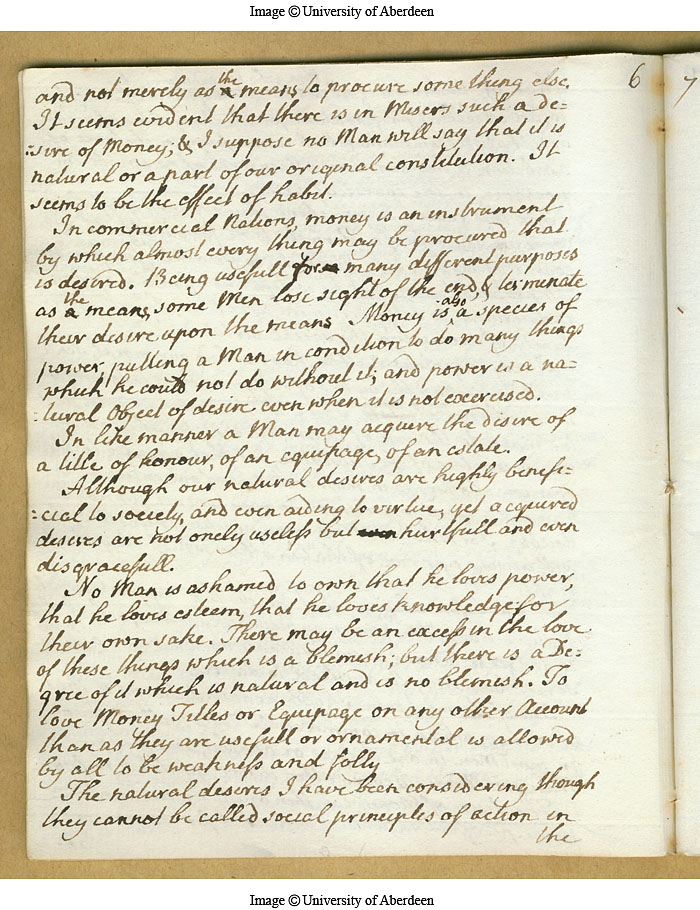 Image © University of Aberdeen
6
7
and not merely as the means to procure some thing else.
It seems evident that there is in Misers such a de=
:sire of Money; & I suppose no Man will say that it is
natural or a part of our original constitution. It
seems to be the effect of habit.
In commercial Nations, money is an instrument
by which almost every thing may be procured that
is desired. Being usefull for many different purposes
as the means, some Men lose sight of the end & terminate
their desire upon the means Money is also a species of
power, putting a Man in condition to do many things
which he could not do without it; and power is a na=
:tural Object of desire even when it is not exercised.
In like manner a Man may acquire the disire of
a title of honour, of an equipage, of an estate.
Although our natural desires are highly benefi=
:cial to society, and even aiding to virtue, yet acquired
desires are not onely useless but even hurtfull and even
disgracefull.
No Man is ashamed to own that he loves power,
that he loves esteem, that he loves knowledge for
their own sake. There may be an excess in the love
of these things which is a blemish; but there is a De=
gree of it which is natural and is no blemish. To
love Money Titles or Equipage on any other Account
than as they are usefull or ornamental is allowed
by all to be weakness and folly
The natural desires I have been considering though
they cannot be called social principles of action in
the
Image © University of Aberdeen